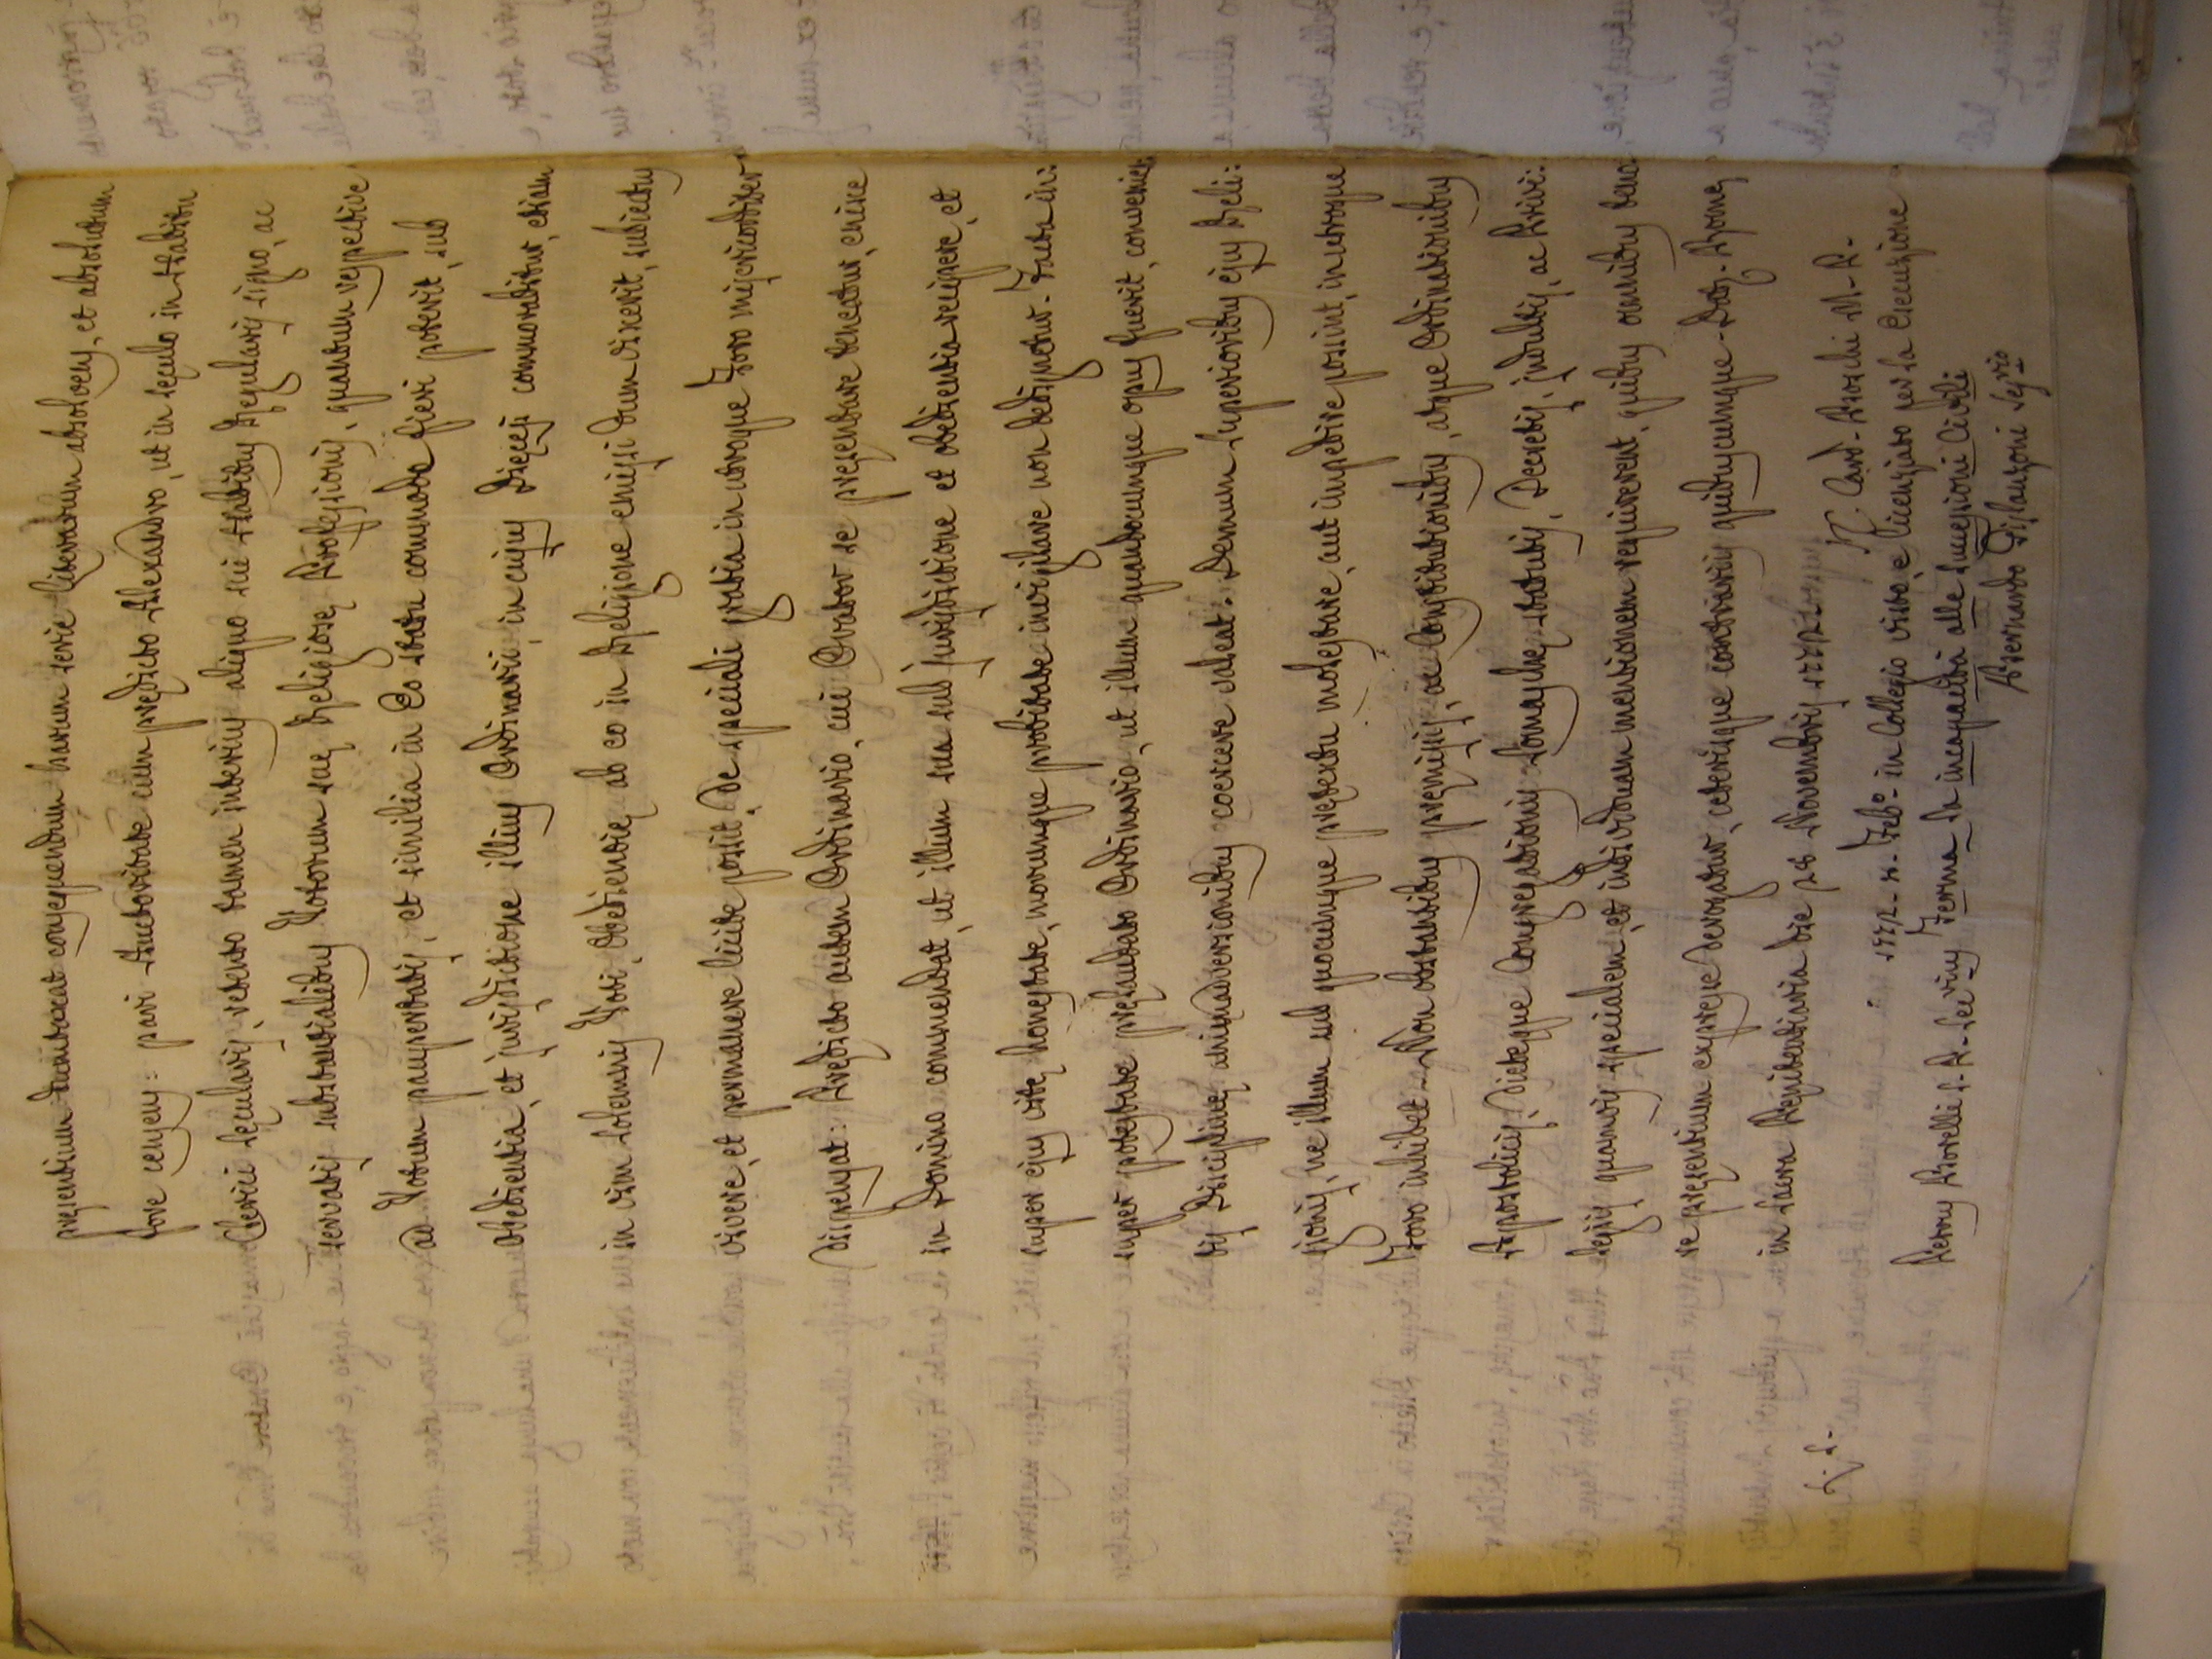 presentium dumtaxat consequendum harum serie liberatum absolvens, et absolutum
fore censens: pari Auctoritate cum predicto Alexandro, ut in seculo in Habitu
Clerici secularis, retento tamen interius aliquo sui Habitus Regularis signo, ac
servatis substantialibus Votorum sue Religiose Professionis, quantum respective
ad Votum paupertatis, et similia in Eo statu commode fieri poterit, sub
obedientia, et jurisdictione illius Ordinarii, in cujus Diecesi commorabitur, etiam
in vim solemnis Voti Obedientie, ab eo in Religione emissi dum vixerit, subjectus
vivere, et permanere licite possit, de speciali gratia in utroque Foro misericorditer
dispensat: Predicto autem Ordinario, cui Orator se presentare teneatur, enixe
in Domino commendat, ut illum sua sub jurisdictione et obedientia recipere, et
super ejus vite honestate, morumque probitate invigilare non dedignetur. Facta in:
super potestate prefato Ordinario, ut illum quandocunque opus fuerit, convenien:
tis Discipline animadversionibus coercere valeat: Demum Superioribus ejus Reli:
gionis, ne illum sub quocunque pretextu molestare, aut impedire possint, in utroque
Foro inhibet. Non obstantibus premissis, ac Constitutionibus, atque Ordinationibus
Apostolicis, dicteque Congregationis Monasterii, statutis, Decretis, indultis, ac Privi:
legiis quamvis specialem, et individuam mentionem requirerent, quibus omnibus teno:
re presentium expresse derogatur, ceterisque contrariis quibuscumque. Dat. Rome
in Sacra Penitentiaria die 28 Novembris 1772
L. S.
Card. Boschi M. P.
1772. Feb.o in Collegio visto, e licenziato per la Esecuzione
Petrus Borelli S. P. Secrius Ferma la incapacità alle successioni Civili
Bernardo Seg.rio